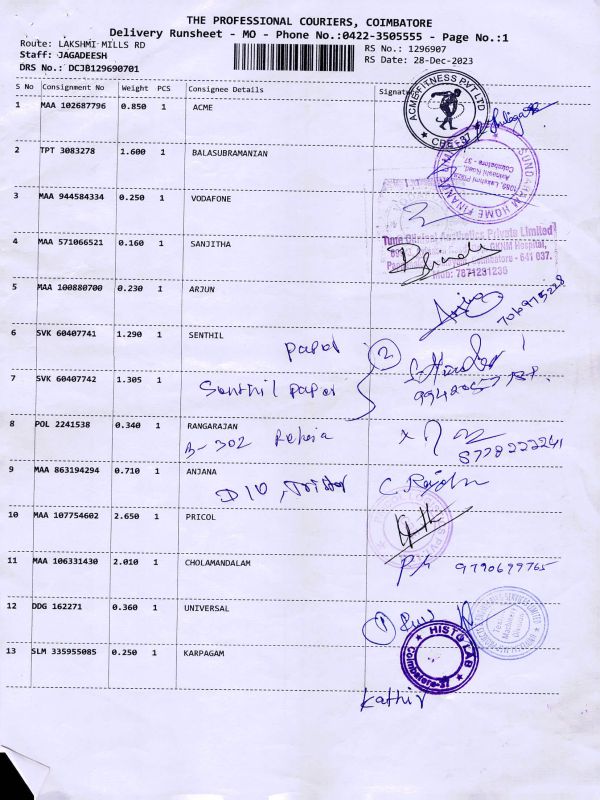 THE PROFESSIONAL COURIERS, COIMBATORE
Delivery Runsheet - MO - Phone No.:0422-3505555 - Page No.:1
Route: LAKSHMI MILLS RD
RS No.: 1296907
Staff: JAGADEESH
RS Date: 28-Dec-2023
DRS No.: DCJB129690701
S No Consignment No Weight PCS Consignee Details Signature
1 MAA 102687796 0.850 1 ACME
ACME FITNESS PVT LTD
CBE-37
2 TPT 3083278 1.600 1 BALASUBRAMANIAN
SUNDARAM HOME FINANCE
1055, Lakshmi Plaza
Avinashi Road,
Coimbatore - 37
3 MAA 944584334 0.250 1 VODAFONE
Aesthetics Private Limited
GKNM Hospital,
Coimbatore - 641 037.
Mob: 7871231236
4 MAA 571066521 0.160 1 SANJITHA
5 MAA 100880700 0.230 1 ARJUN
6 SVK 60407741 1.290 1 SENTHIL
papar
2
7 SVK 60407742 1.305 1
Senthil papar
8 POL 2241538 0.340 1 RANGARAJAN
B-302 Raheja
8778222241
9 MAA 863194294 0.710 1 ANJANA
D10,
10 MAA 107754602 2.650 1 PRICOL
11 MAA 106331430 2.010 1 CHOLAMANDALAM
9790699765
12 DDG 162271 0.360 1 UNIVERSAL
1
13 SLM 335955085 0.250 1 KARPAGAM
HISTO LAB
Coimbatore-37
Kathir